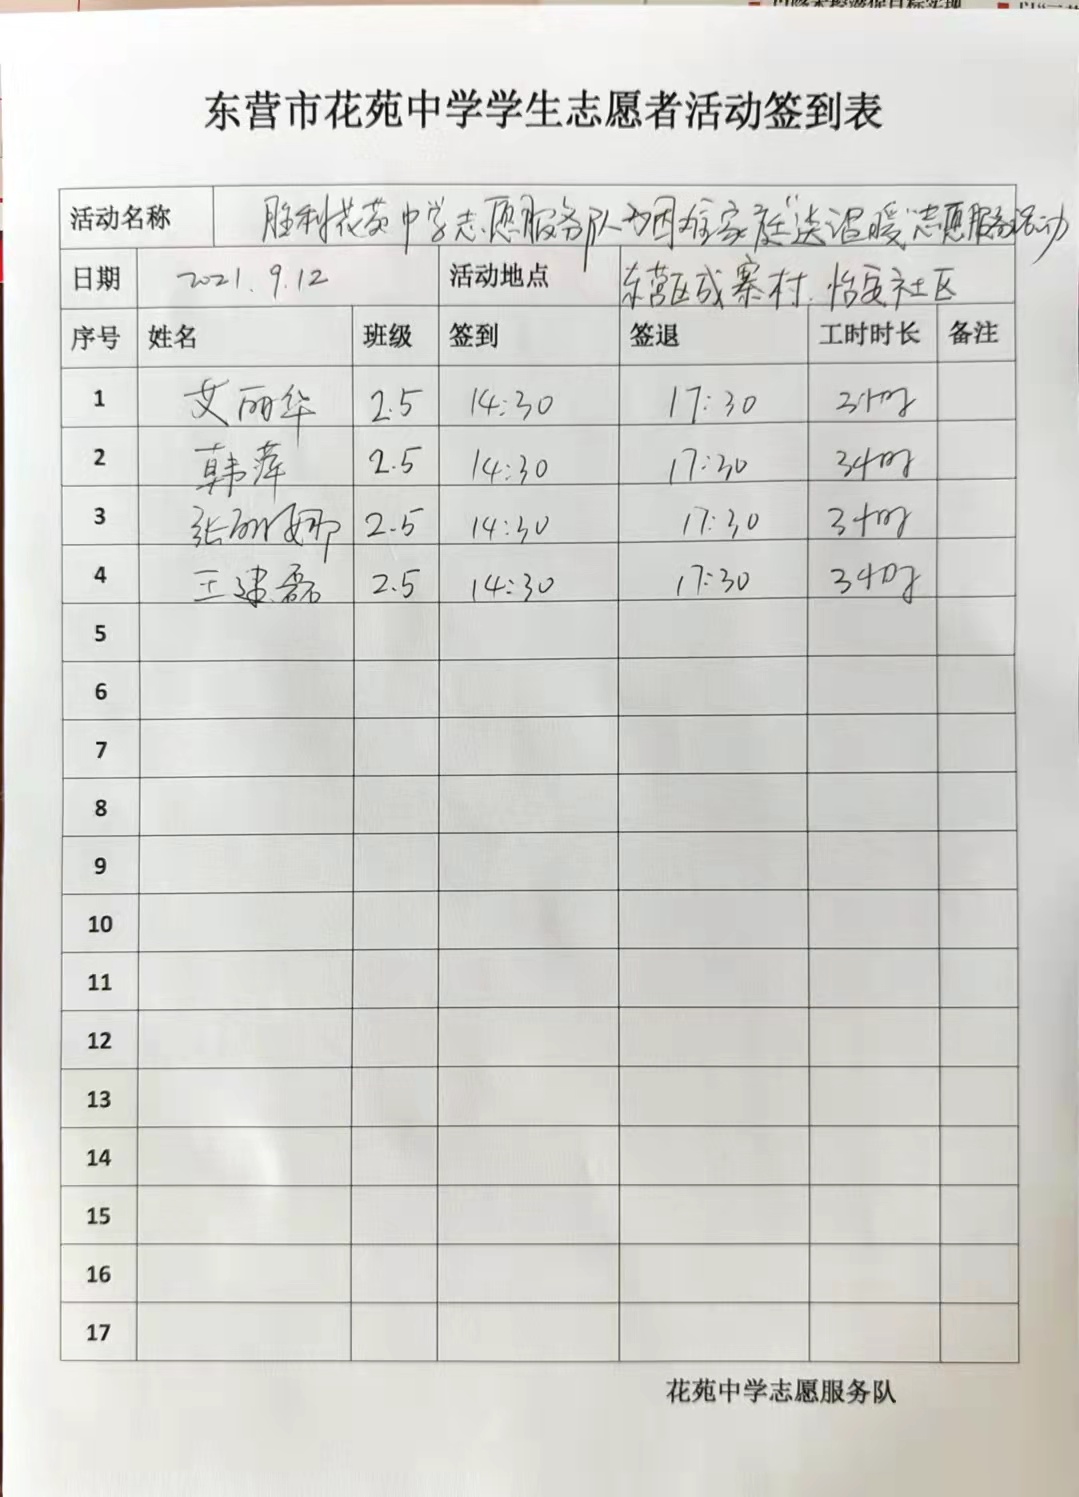 东营市花苑中学学生志愿者活动签到表
活动名称 胜利花苑中学志愿服务队为困难家庭"送温暖"志愿服务活动
日期 2021.9.12 活动地点 东营区成寨村 怡安社区
序号 姓名 班级 签到 签退 工时时长 备注
1 艾丽华 2.5 14:30 17:30 3小时
2 韩萍 2.5 14:30 17:30 3小时
3 张丽娜 2.5 14:30 17:30 3小时
4 王建磊 2.5 14:30 17:30 3小时
5
6
7
8
9
10
11
12
13
14
15
16
17
花苑中学志愿服务队